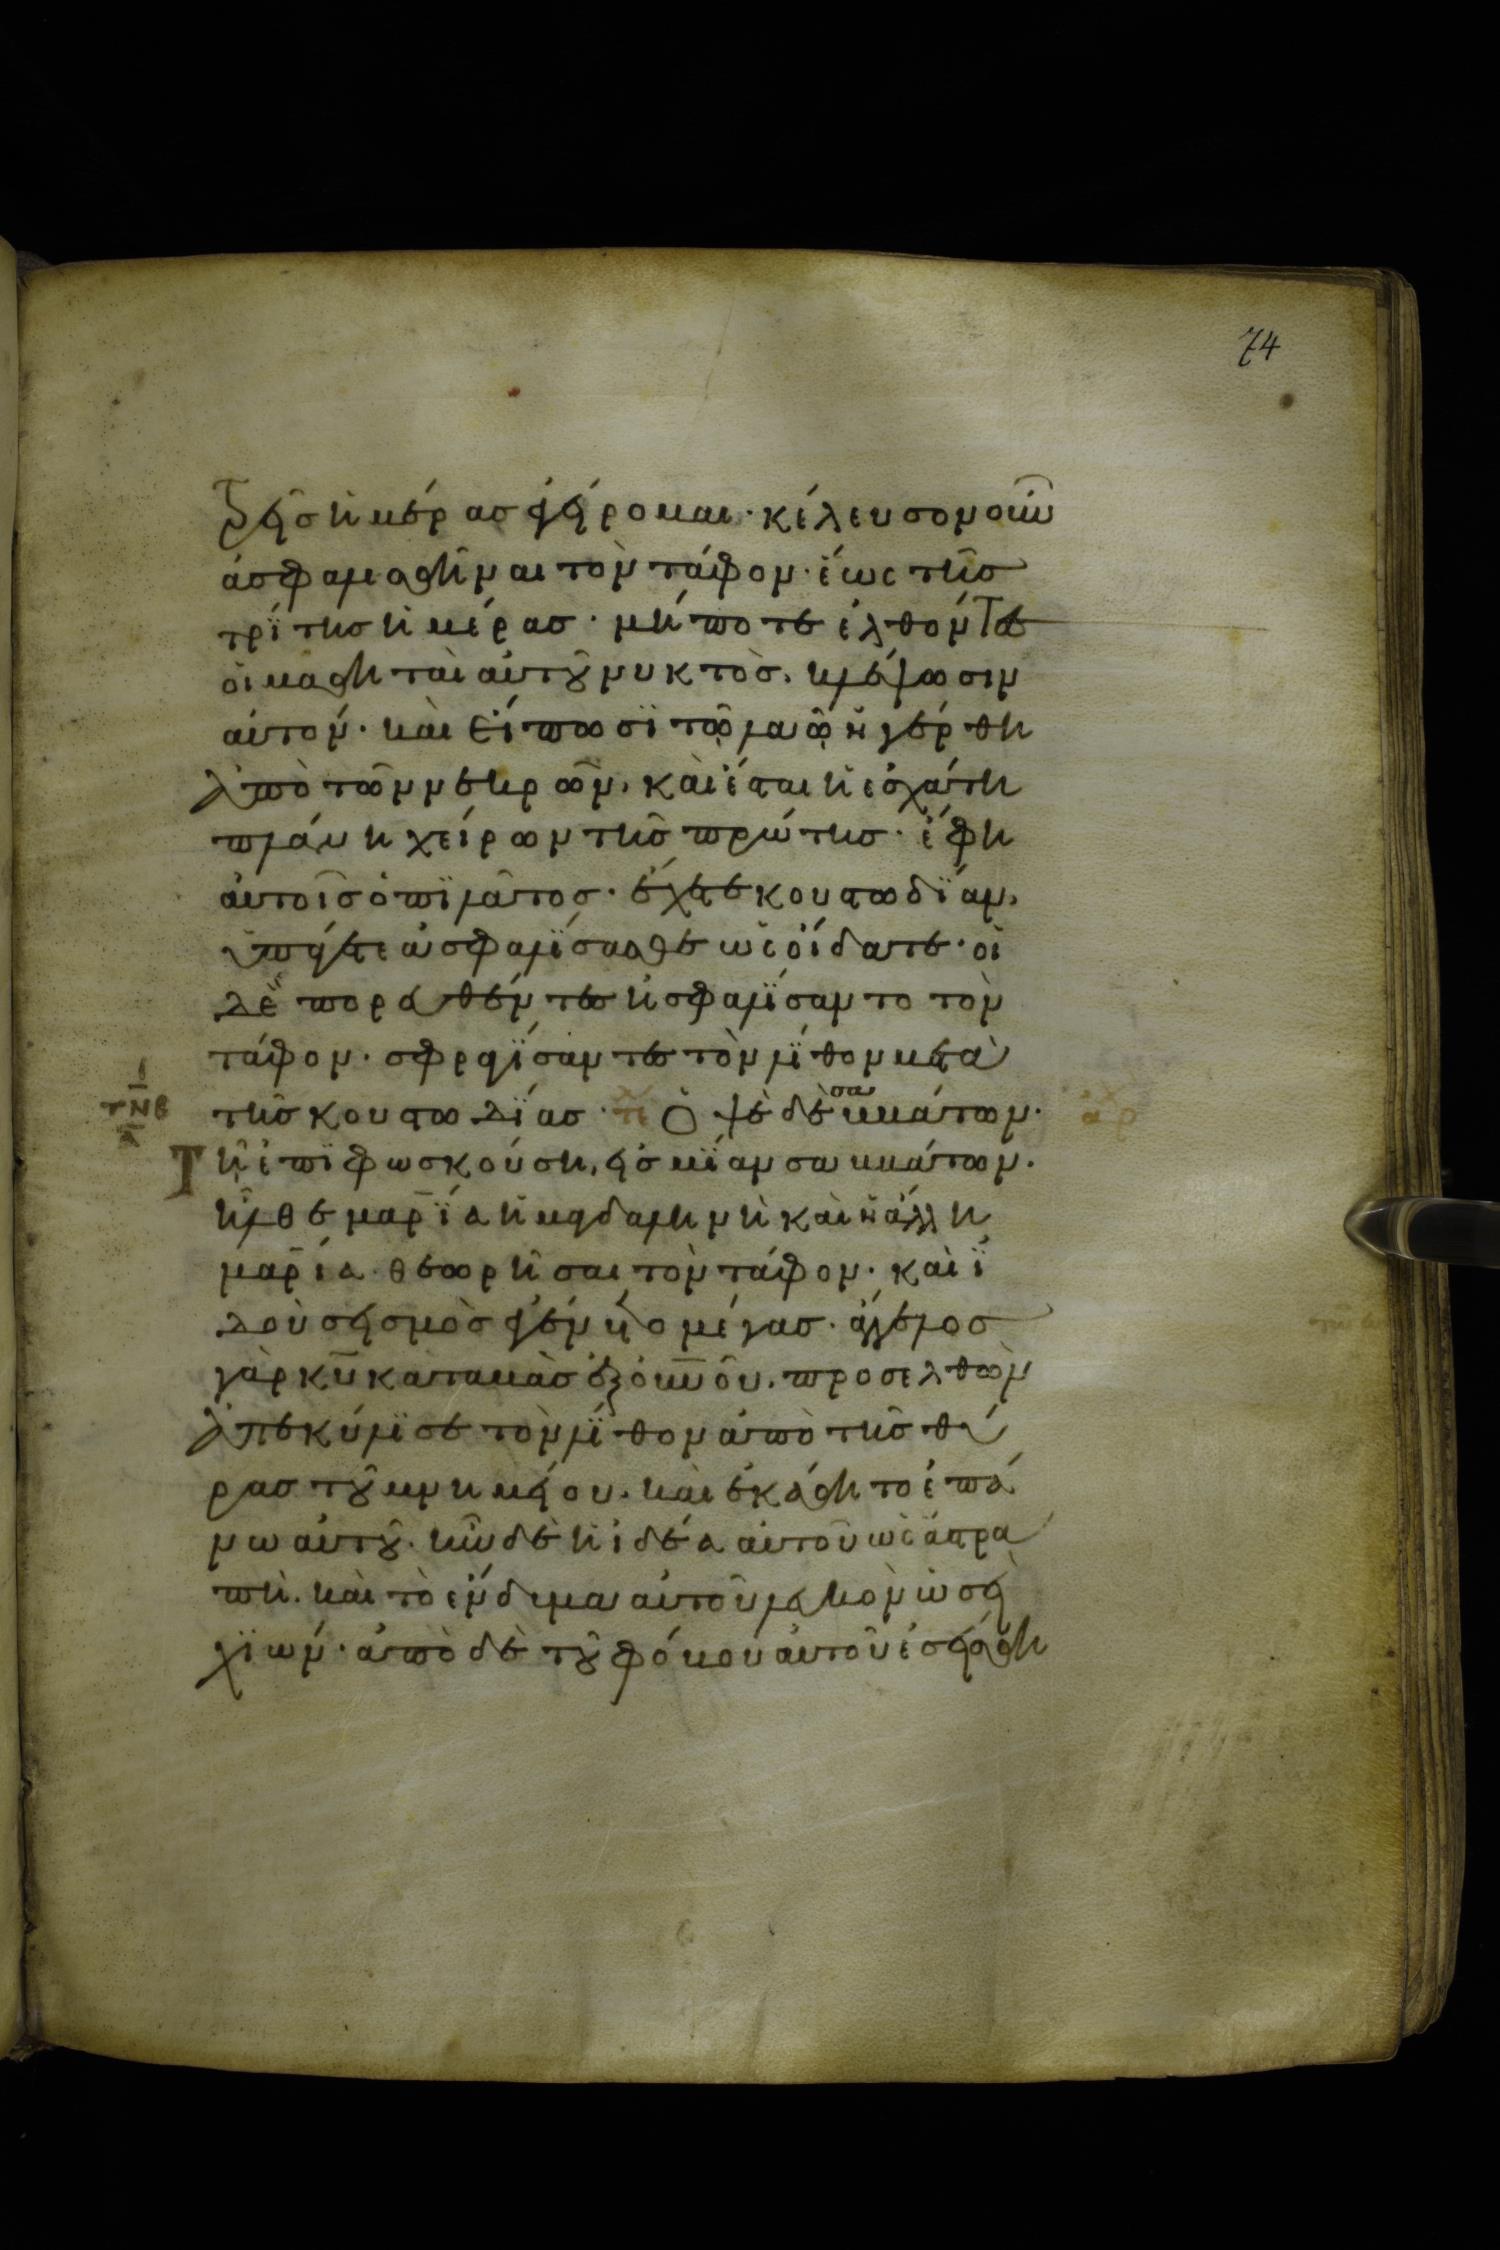 74
τρεῖσ ἡμέρασ ἐγείρομαι· κέλευσον οὖν
ἀσφαλισθῆναι τὸν τάφον· ἕως τῆσ
τρίτησ ἡμέρασ· μήποτε ἐλθόντεσ
οἱ μαθηταὶ αὐτοῦ νυκτὸσ. κλέψωσιν
αὐτόν· καὶ εἴπωσϊ τῷ λαῷ ἠγέρθη
ἀπὸ τῶν νεκρῶν, καὶ ἔσται ἡ ἐσχάτη
πλάνη χείρων τῆσ πρώτησ· ἔφη
αὐτοῖσ ὁ πϊλᾶτοσ· ἔχετε κουστωδΐαν,
ὑπάγετε ἀσφαλΐσασθε ὡς οἴδατε· οἱ
δὲ πορευθέντεσ ἠσφαλΐσαντο τὸν
τάφον· σφραγΐσαντεσ τὸν λΐθον μετὰ
τῆσ κουστωδΐασ· Ὀψὲ δὲ σαββάτων·
Τῆ ἐπϊφωσκούση, εἰσ μΐαν σαββάτων.
ἦλθε μαρΐα ἡ μαγδαληνὴ καὶ ἡ ἄλλη
μαρία θεωρῆσαι τὸν τάφον· καὶ ϊ
δοὺ σεισμὸσ ἐγένετο μέγασ· ἄγγελοσ
γὰρ κυ καταβὰσ ἐξ ουνου. προσελθὼν
ἀπεκύλϊσε τὸν λΐθον ἀπὸ τῆσ θύ
ρασ τοῦ μνημείου. καὶ ἐκάθητο ἐπά
νω αὐτοῦ· ἦν δὲ ἡ ἰδέα αὐτοῦ ὡς ἀστρα
πὴ. καὶ τὸ ἔνδυμα αὐτοῦ λευκὸν ὡσεὶ
χϊών· ἀπὸ δὲ τοῦ φόβου αὐτοῦ ἐσείσθη